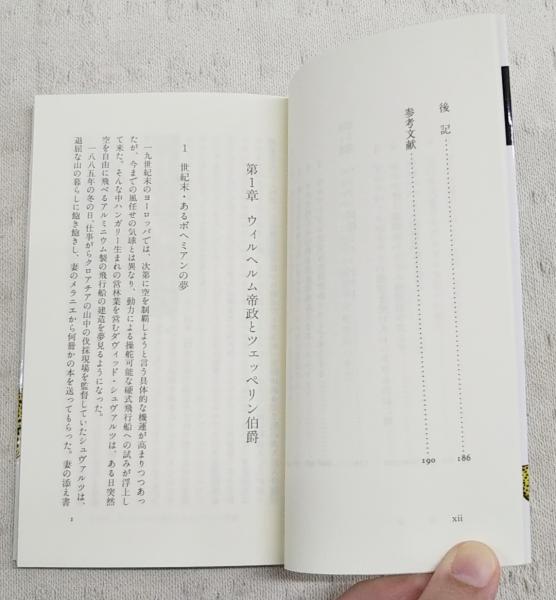 後記……………………………186
参考文献……………………………190
xii
第1章 ウィルヘルム帝政とツェッペリン伯爵
1 世紀末・あるボヘミアンの夢
一九世紀末のヨーロッパでは、次第に空を制覇しようと言う具体的な機運が高まりつつあっ
たが、今までの風任せの気球とは異なり、動力による操舵可能な硬式飛行船への試みが浮上し
て来た。そんな中ハンガリー生まれの営林業を営むダヴィッド・シュヴァルツは、ある日突然
空を自由に飛べるアルミニウム製の飛行船の建造を夢見るようになった。
一八八五年の冬の日、仕事がらクロアチアの山中の伐採現場を監督していたシュヴァルツは、
退屈な山の暮らしに飽き飽きし、妻のメラニエから何冊かの本を送ってもらった。妻の添え書
1